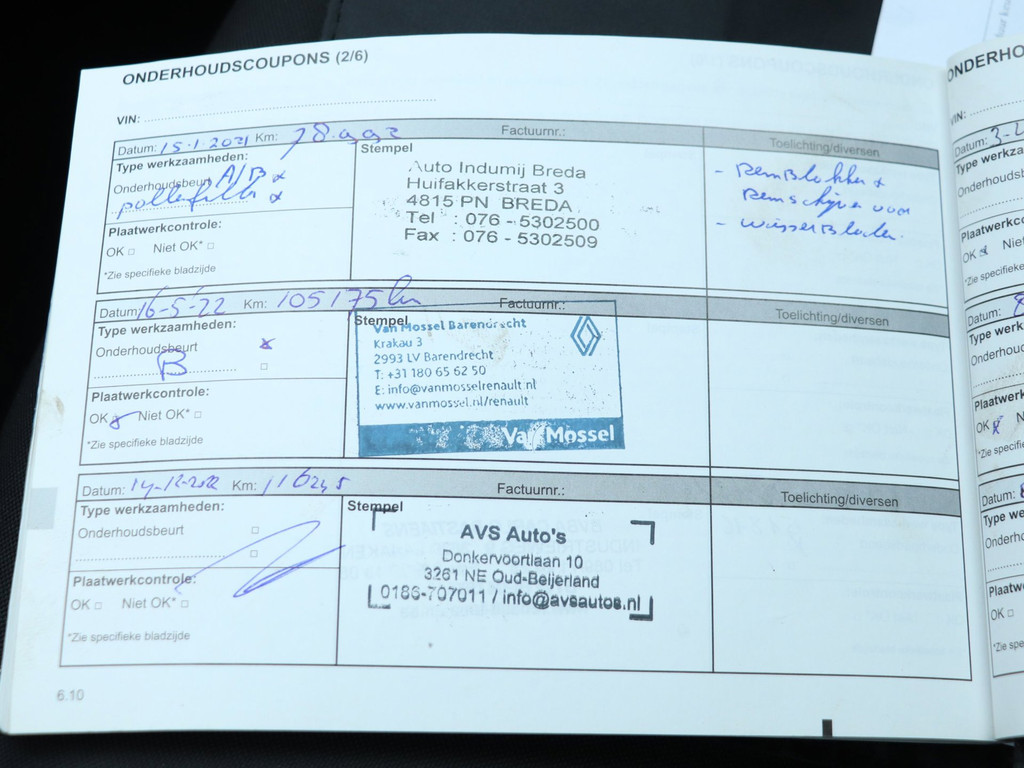 ONDERHOUDSCOUPONS (2/6)
VIN:
Datum: 15-1-2021 Km: Factuurnr.:
Toelichting/diversen
Type werkzaamheden:
Onderhoudsbeurt A/B x
pollenfilter x
Plaatwerkcontrole:
OK □ Niet OK* □
*Zie specifieke bladzijde
Stempel
Auto Indumij Breda
Huifakkerstraat 3
4815 PN BREDA
Tel : 076 - 5302500
Fax : 076 - 5302509
- RemBlokken +
Remschijven voor
- wisserBladen.
Datum: 16-5-22 Km: 105175 km Factuurnr.:
Toelichting/diversen
Type werkzaamheden:
Onderhoudsbeurt x
B □
Plaatwerkcontrole:
OK x Niet OK* □
*Zie specifieke bladzijde
Stempel
Van Mossel Barendrecht
Krakau 3
2993 LV Barendrecht
T: +31 180 65 62 50
E: info@vanmosselrenault.nl
www.vanmossel.nl/renault
Van Mossel
Datum: 14-12-2022 Km: Factuurnr.:
Toelichting/diversen
Type werkzaamheden:
Onderhoudsbeurt □
□
Plaatwerkcontrole:
OK □ Niet OK* □
*Zie specifieke bladzijde
Stempel
AVS Auto's
Donkervoortlaan 10
3261 NE Oud-Beijerland
0186-707011 / info@avsautos.nl
6.10
ONDERHO
VIN:
Datum: 3-2
Type werkza
Onderhoudsb
Plaatwerkco
OK x Nie
*Zie specifieke
Datum:
Type werk
Onderhoud
Plaatwerk
OK x N
*Zie specifie
Datum:
Type we
Onderho
Plaatwe
OK □
*Zie spe